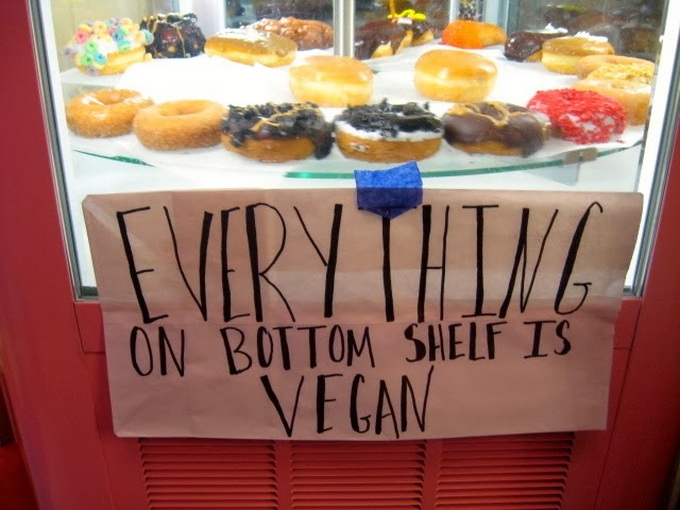 EVERYTHING
ON BOTTOM SHELF IS
VEGAN